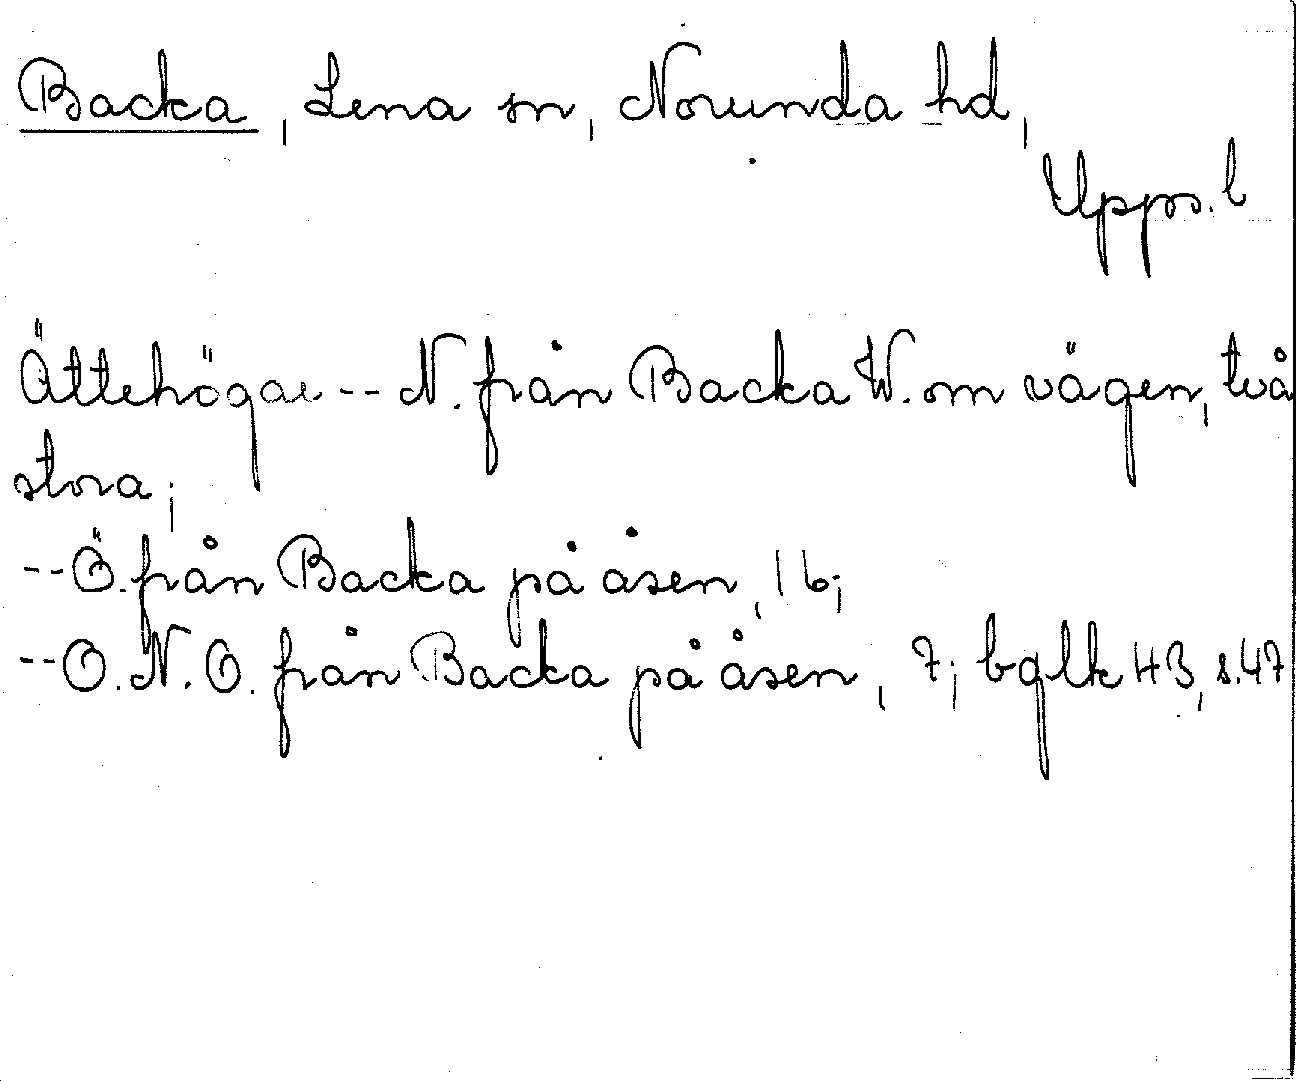 Backa, Lena sn, Norunda hd,
Upps. l
Ättehögar -- N. från Backa W. om vägen, två
stora;
-- Ö. från Backa på åsen, 16;
-- O. N. O. från Backa på åsen, 7; bglk 43, s. 47